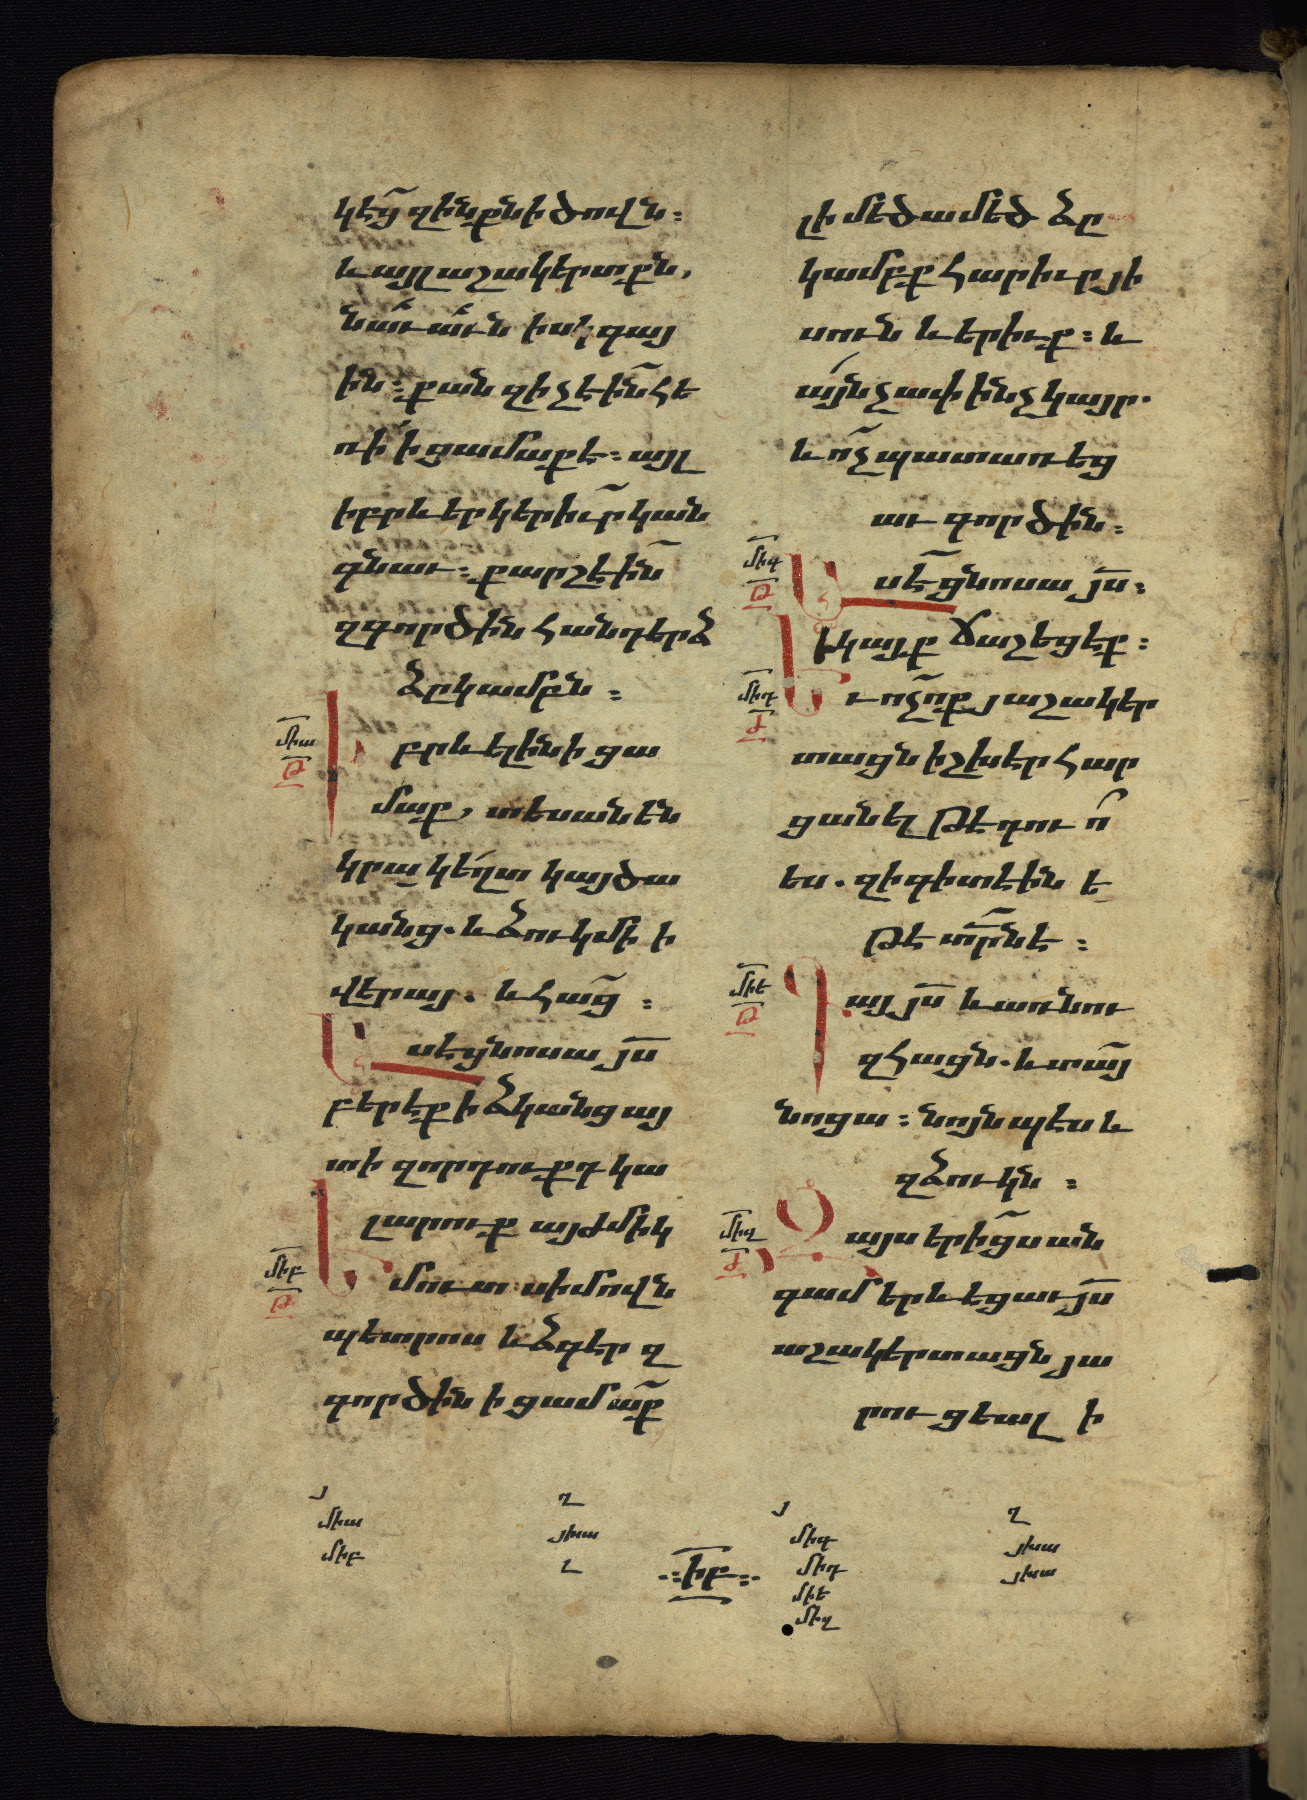 կէց̃ զինքնի ծովն։
և այլ աշակերտքն,
նաւ́աւ́ն իսկ գայ
ին։ քան զի չէին̃ հե
ռի ի ցամաքէ։ այլ
իբրև երկերիւր̃ կան
գնաւ։ քարշէին̃
զգործին հանդերձ
ձըկամբն։
միա
Թ
Իբրև ելին ի ցա
մաք, տեսանեն
կրակեղտ կայծա
կանց. և ձուկ մի ի
վերայ. և հաց̃։
Ասէ ցնոսա յս̃
բերէք ի ձկանց այ
տի զոր դուք դ կա
լարուք այժմիկ
միբ
Թ
Եմուտ սիմովն
պետրոս և ձգեր զ
գործին ի ցամաք̃
լի մեծամեծ ձը
կամբք հարիւր յի
սուն և երիւք։ և
այնչափ ինչ կայր.
և ոչ̃ պատառեց
աւ գործին։
միգ
Թ
Ասէ̃ ցնոսա յս̃։
եկայք ճաշեցէք։
միդ
Ժ
Եւ ոչ̃ ոք յաշակեր
տացն իշխէր հար
ցանել թէ դու ո̃
ես. զի գիտէին է
թէ տր̃ն է։
միե
Թ
Գայ յս̃ և առնու
զհացն. և տայ̃
նոցա։ նոյնպէս և
զձուկն։
միզ
Ժ
Զայս երիցս̃ ան
գամ երևեցաւ յս̃
աշակերտացն յա
րուցեալ ի
յ
միա
միբ
ղ
յխա
ՃԻԲ
յ
միգ
միդ
միե
միզ
ղ
յխա
յխա